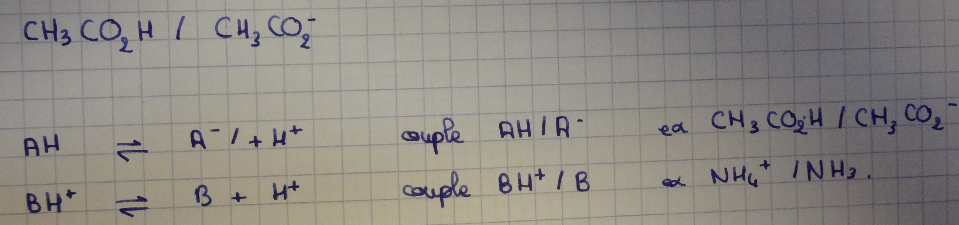 CH₃CO₂H / CH₃CO₂⁻
AH ⇌ A⁻ / + H⁺ couple AH / A⁻ ex CH₃CO₂H / CH₃CO₂⁻
BH⁺ ⇌ B + H⁺ couple BH⁺ / B ex NH₄⁺ / NH₃.